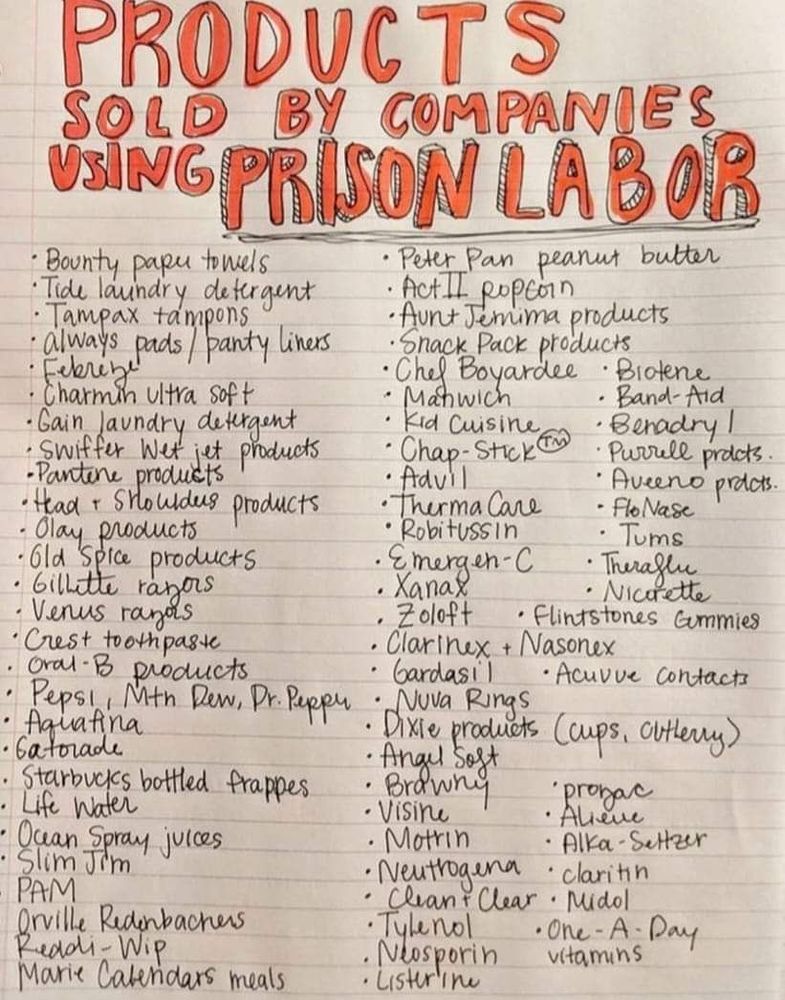 PRODUCTS
SOLD BY COMPANIES
USING PRISON LABOR
· Bounty paper towels
· Tide laundry detergent
· Tampax tampons
· Always pads / panty liners
· Febreze
· Charmin Ultra Soft
· Gain laundry detergent
· Swiffer Wet jet products
· Pantene products
· Head + Shoulders products
· Olay products
· Old Spice products
· Gillette razors
· Venus razors
· Crest toothpaste
· Oral-B products
· Pepsi, Mtn Dew, Dr. Pepper
· Aquafina
· Gatorade
· Starbucks bottled frappes
· Life Water
· Ocean Spray juices
· Slim Jim
PAM
Orville Redenbachers
Reddi-Wip
Marie Calendars meals
· Peter Pan peanut butter
· Act II popcorn
· Aunt Jemima products
· Snack Pack products
· Chef Boyardee
· Manwich
· Kid Cuisine
· Chap-Stick TM
· Advil
· ThermaCare
· Robitussin
· Emergen-C
· Xanax
· Zoloft
· Clarinex + Nasonex
· Gardasil
· Nuva Rings
· Dixie products (cups, cutlerry)
· Angel Soft
· Brawny
· Visine
· Motrin
· Neutrogena
· Clean + Clear
· Tylenol
· Neosporin
· Listerine
· Biotene
· Band-Aid
· Benadryl
· Purrell prdcts.
· Aveeno prdcts.
· FloNase
· Tums
· Theraflu
· Nicorette
· Flintstones Gummies
· Acuvue Contacts
· prozac
· Alieve
· Alka-Seltzer
· claritin
· Midol
· One-A-Day
vitamins